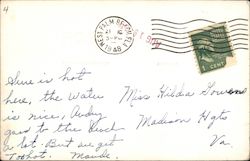 4
WEST PALM BEACH FLA.
5-PM
1948
Sure is hot
here, the water
is nice, Andy
goes to the Beach
a lot. But we get
Too hot. Maude.
Miss Hilda Gowen
Madison Hgts
Va.